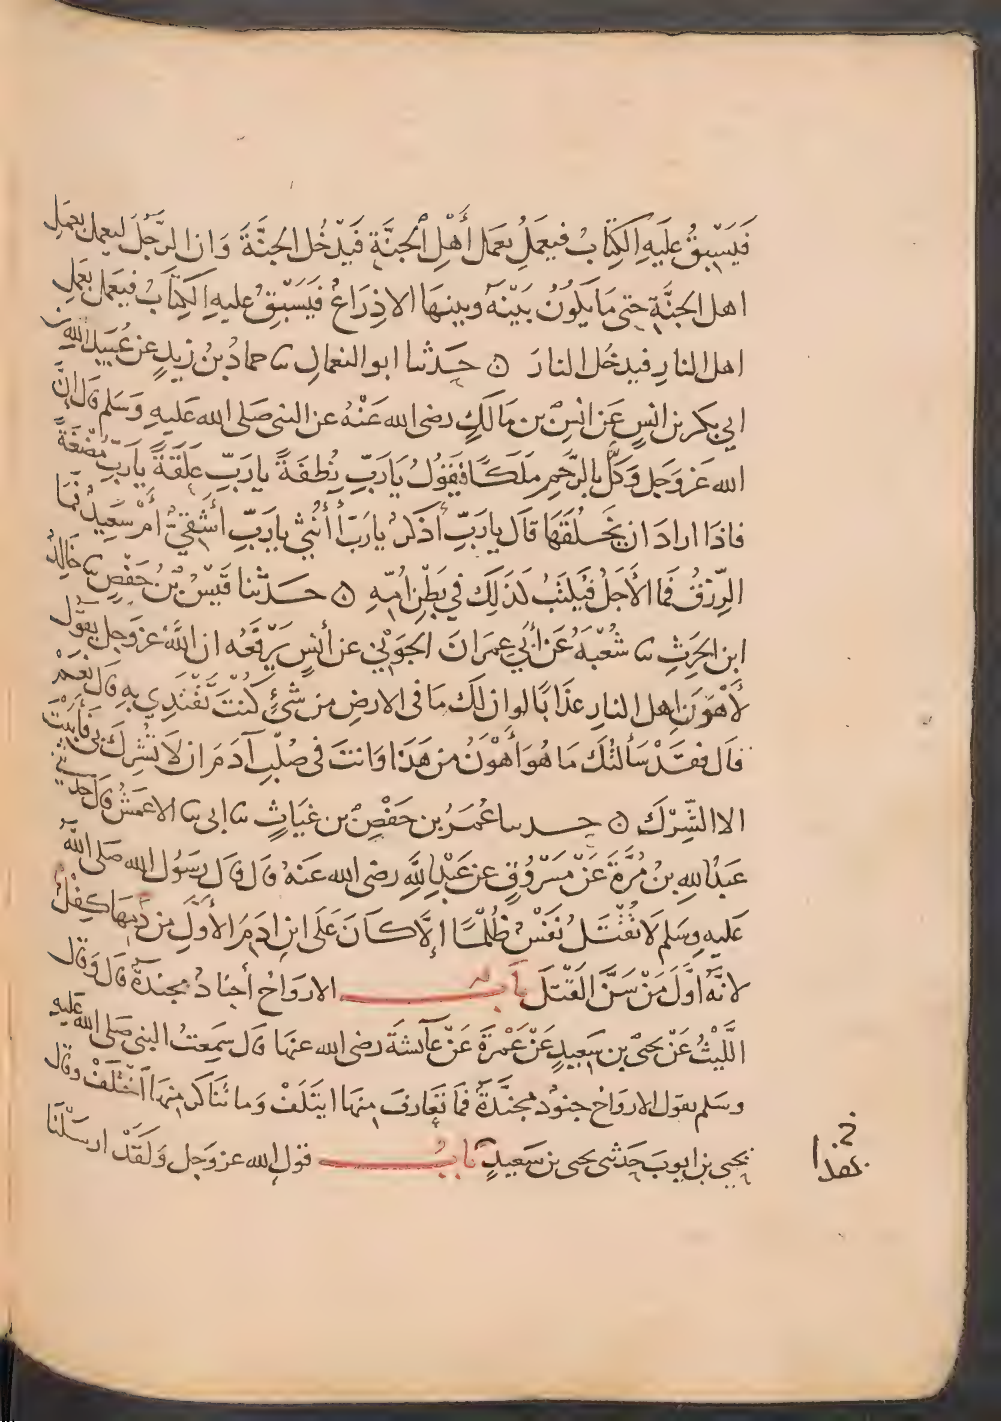 فَيَسْبِقُ عَلَيْهِ الْكِتَابُ فيعمَلُ بعَمَل أَهْلِ الْجَنَّةِ فَيَدْخُل الجنَّةَ وَان الرَّجُلَ ليعمل بعَمَلِ
اهل الجنَّةِ حتى مَا يَكُونُ بَيْنَهُ وبينهَا الا ذِرَاعٌ فَيَسْبِقُ عليهِ الكِتَابُ فيعمَل بعَمَلِ
اهل النارِ فيدخُل النارَ ۞ حَدثنا ابو النعمانِ ثنا حمادُ بنُ زيدٍ عن عُبَيدِ اللهِ بن
ابي بكر بن انسٍ عَن انسِ بن مَالكٍ رضى الله عَنْهُ عن النبى صَلى الله عَليهِ وَسَلم قال إِنَّ
الله عَزوَجَل وَكَلَّ بالرَّحِمِ مَلَكًا فَيَقُولُ يَا رَبِّ نُطفَةً يا رَبِّ عَلَقَةً يا رَبِّ مُضْغَةً
فاذَا ارادَ ان يَخلُقَهَا قال يا رَبِّ أذَكَرٌ يا رَبِّ أُنثى يا رَبِّ أَشَقِيٌّ أَمْ سَعِيدٌ فمَا
الرِّزْقُ فَمَا الأَجَلُ فَيُكتَبُ كَذَلِكَ في بَطْنِ امِّهِ ۞ حَدَّثنا قَيْسُ بْنُ حَفْصٍ ثنا خَالِدُ
ابن الحرِثِ ثنا شُعْبَةُ عَن أبِي عِمرَانَ الجَوْنِي عن أنسٍ يَرْفَعُه ان اللَّهَ عزوَجل يقُولُ
لأَهْوَنِ اهل النارِ عذَابًا لو ان لك مَا فى الارضِ من شَىْءٍ كُنْتَ تَفْتَدِي بهِ قال نعَمْ
قال فقَدْ سَألتُكَ مَا هُوَ أَهْوَنُ من هَذَا وَانتَ فى صُلْبِ آدَمَ ان لاَ تُشْرِكَ بى فَأَبَيْتَ
الا الشِّرْكَ ۞ حدثنا عُمَرُ بن حَفْصِ بن غيَاثٍ ثنا ابى ثنا الاعمَشُ قال حدثنى
عَبدُ اللهِ بن مُرَّةَ عَنْ مَسْرُوقٍ عن عَبْدِ اللَّهِ رضى الله عنهُ قال قال رَسُول الله صَلى اللهُ
عَليهِ وسَلم لا تُقْتَلُ نَفسٌ ظُلْمًا إلَّا كانَ عَلَى ابنِ ادَمَ الأوَّلِ من دَمِهَا كِفْلٌ
لانَّهُ أوَّلَ مَنْ سَنَّ القَتْلَ بَابُ الارواحُ أجنادٌ مجندَةٌ قال وَقال
اللَّيْثُ عَنْ يحيَى بن سَعِيدٍ عَنْ عَمْرَةَ عَنْ عَائشَةَ رضى الله عنها قال سَمِعتُ النبى صَلى الله عَليهِ
وسَلم يقول الارواحُ جنودٌ مجنَّدةٌ فمَا تَعَارفَ مِنهَا ايتَلَفَ وَما تَنَاكَر مِنهَا اختَلَفَ وقال
يحيى بن ايوبَ حَدثنى يحيى بن سَعِيدٍ بَابُ قول الله عزوَجل وَلَقَدْ ارسَلْنَا
بهذا